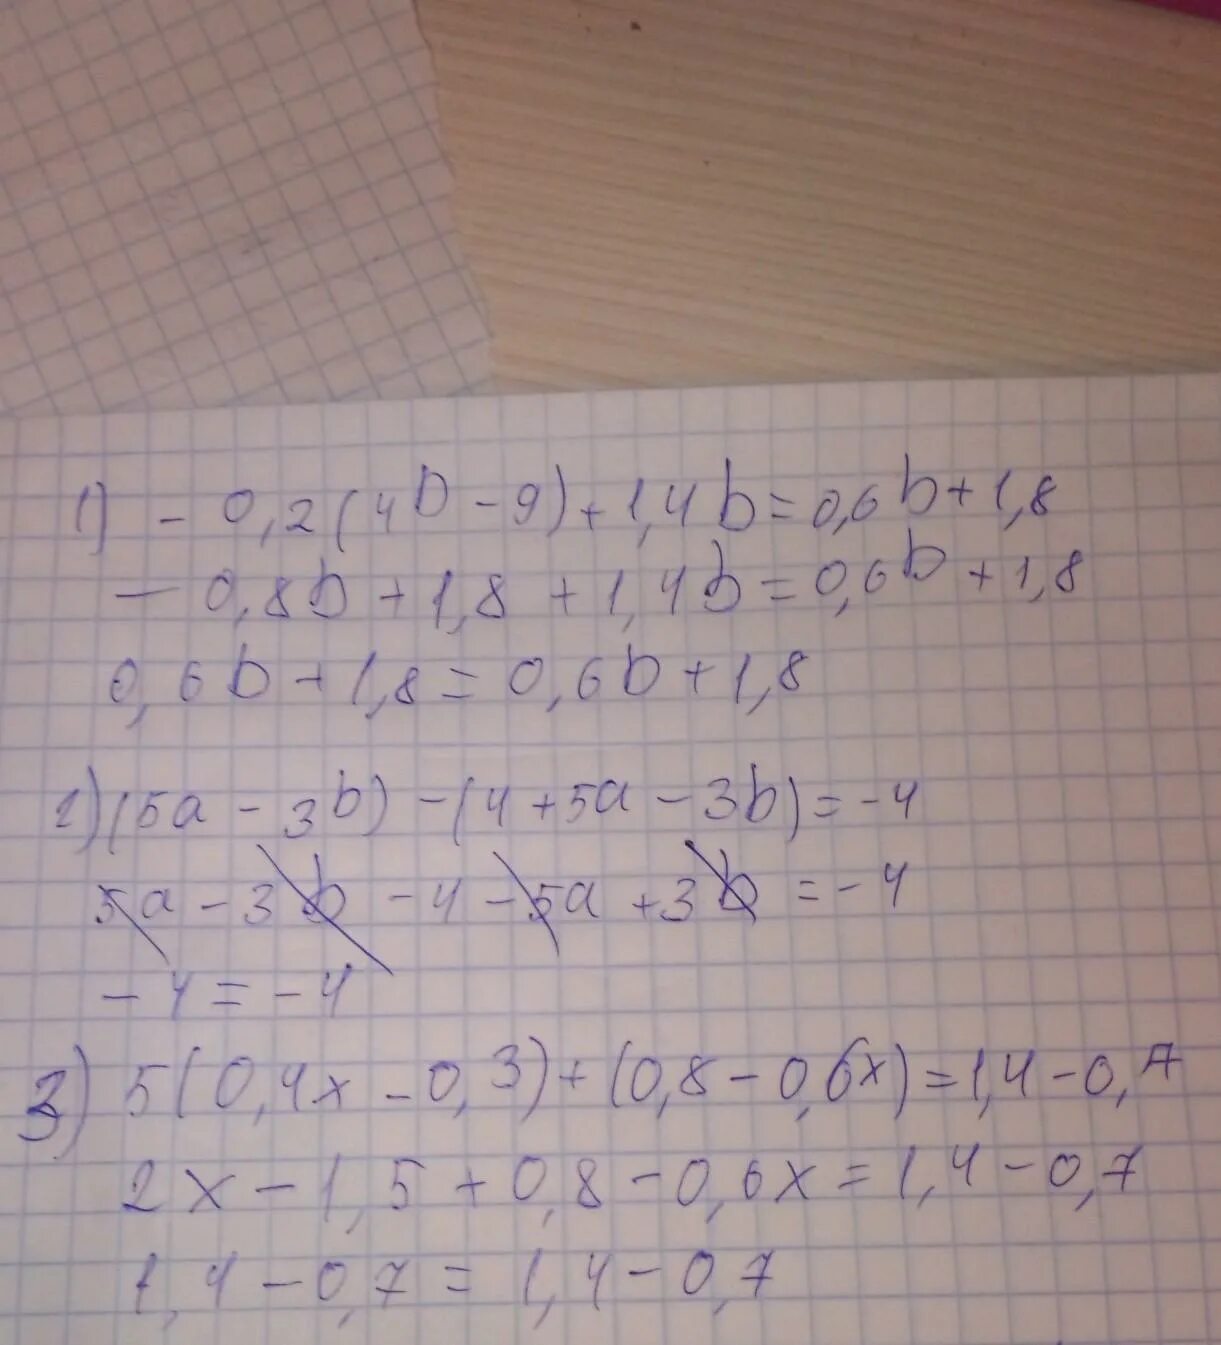 1) - 0,2(4b - 9) + 1,4b = 0,6b + 1,8
- 0,8b + 1,8 + 1,4b = 0,6b + 1,8
0,6b + 1,8 = 0,6b + 1,8
2) (5a - 3b) - (4 + 5a - 3b) = - 4
5a - 3b - 4 - 5a + 3b = - 4
- 4 = - 4
3) 5(0,4x - 0,3) + (0,8 - 0,6x) = 1,4 - 0,7
2x - 1,5 + 0,8 - 0,6x = 1,4 - 0,7
1,4 - 0,7 = 1,4 - 0,7